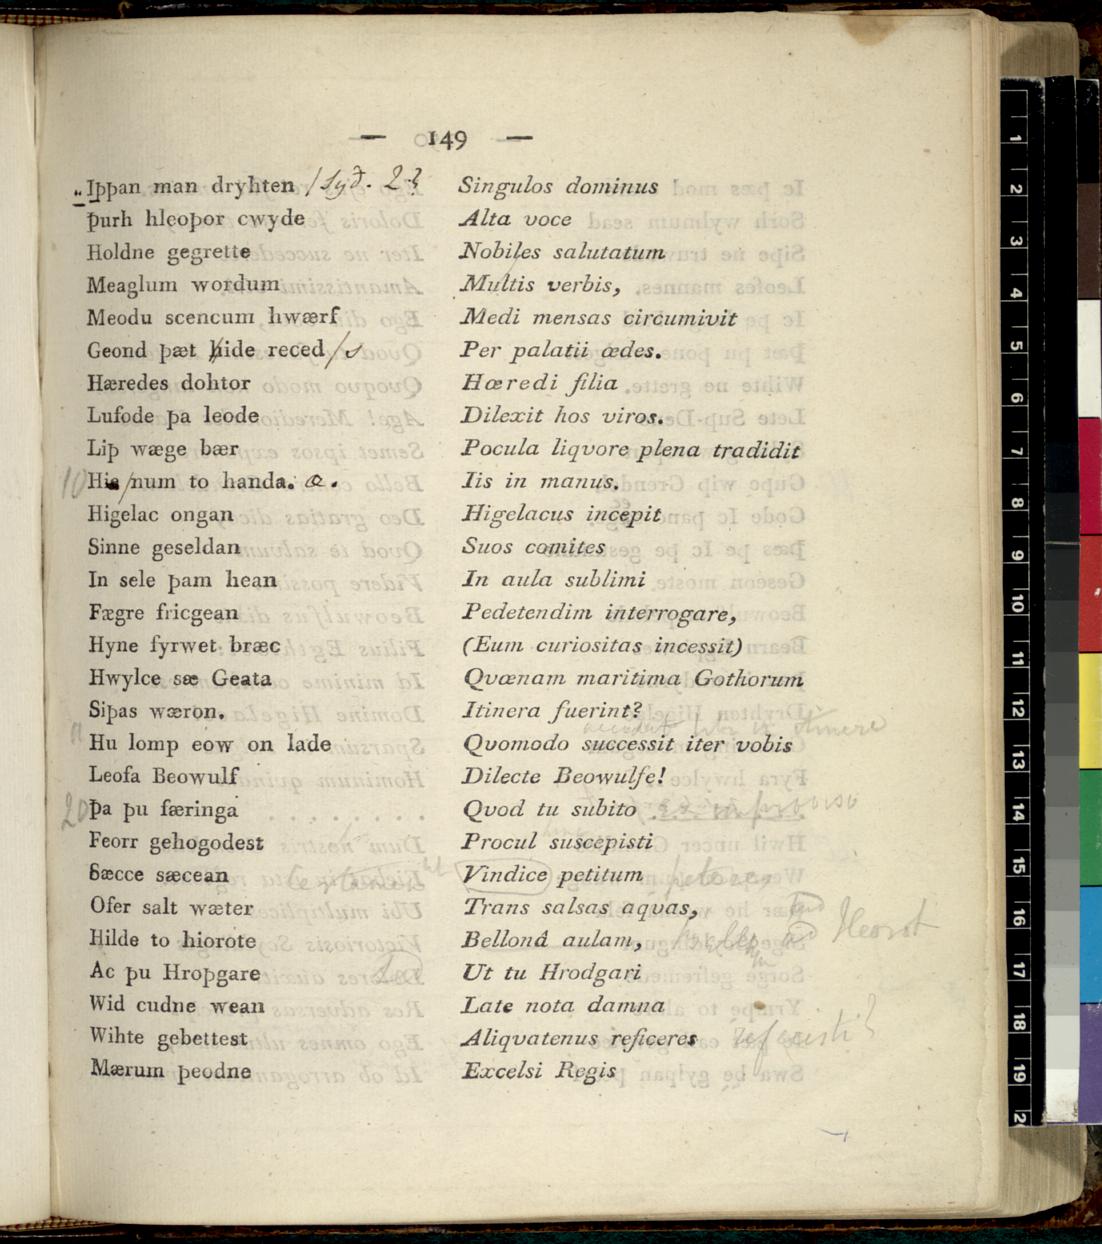 — 149 —
Iþþan man dryhten / Syð. 2 Singulos dominus
þurh hleoþor cwyde Alta voce
Holdne gegrette Nobiles salutatum
Meaglum wordum Multis verbis,
Meodu scencum hwærf Medi mensas circumivit
Geond þæt hide reced /s Per palatii ædes.
Hæredes dohtor Hæredi filia
Lufode þa leode Dilexit hos viros.
Liþ wæge bær Pocula liqvore plena tradidit
10 His/num to handa. a. Iis in manus.
Higelac ongan Higelacus incepit
Sinne geseldan Suos comites
In sele þam hean In aula sublimi
Fægre fricgean Pedetendim interrogare,
Hyne fyrwet bræc (Eum curiositas incessit)
Hwylce sæ Geata Qvænam maritima Gothorum
Siþas wæron. Itinera fuerint?
itinere
Hu lomp eow on lade Qvomodo successit iter vobis
Leofa Beowulf Dilecte Beowulfe!
20 Þa þu færinga Qvod tu subito ex improviso
Feorr gehogodest Procul suscepisti
Sæcce sæcean Certamen Vindice petitum peteres
Ofer salt wæter Trans salsas aquas,
Hilde to hiorote Bellonâ aulam, Heorot
Ac þu Hroþgare Ut tu Hrodgari
Wid cudne wean Late nota damna
Wihte gebettest Aliqvatenus reficeres refecisti?
Mærum þeodne Excelsi Regis